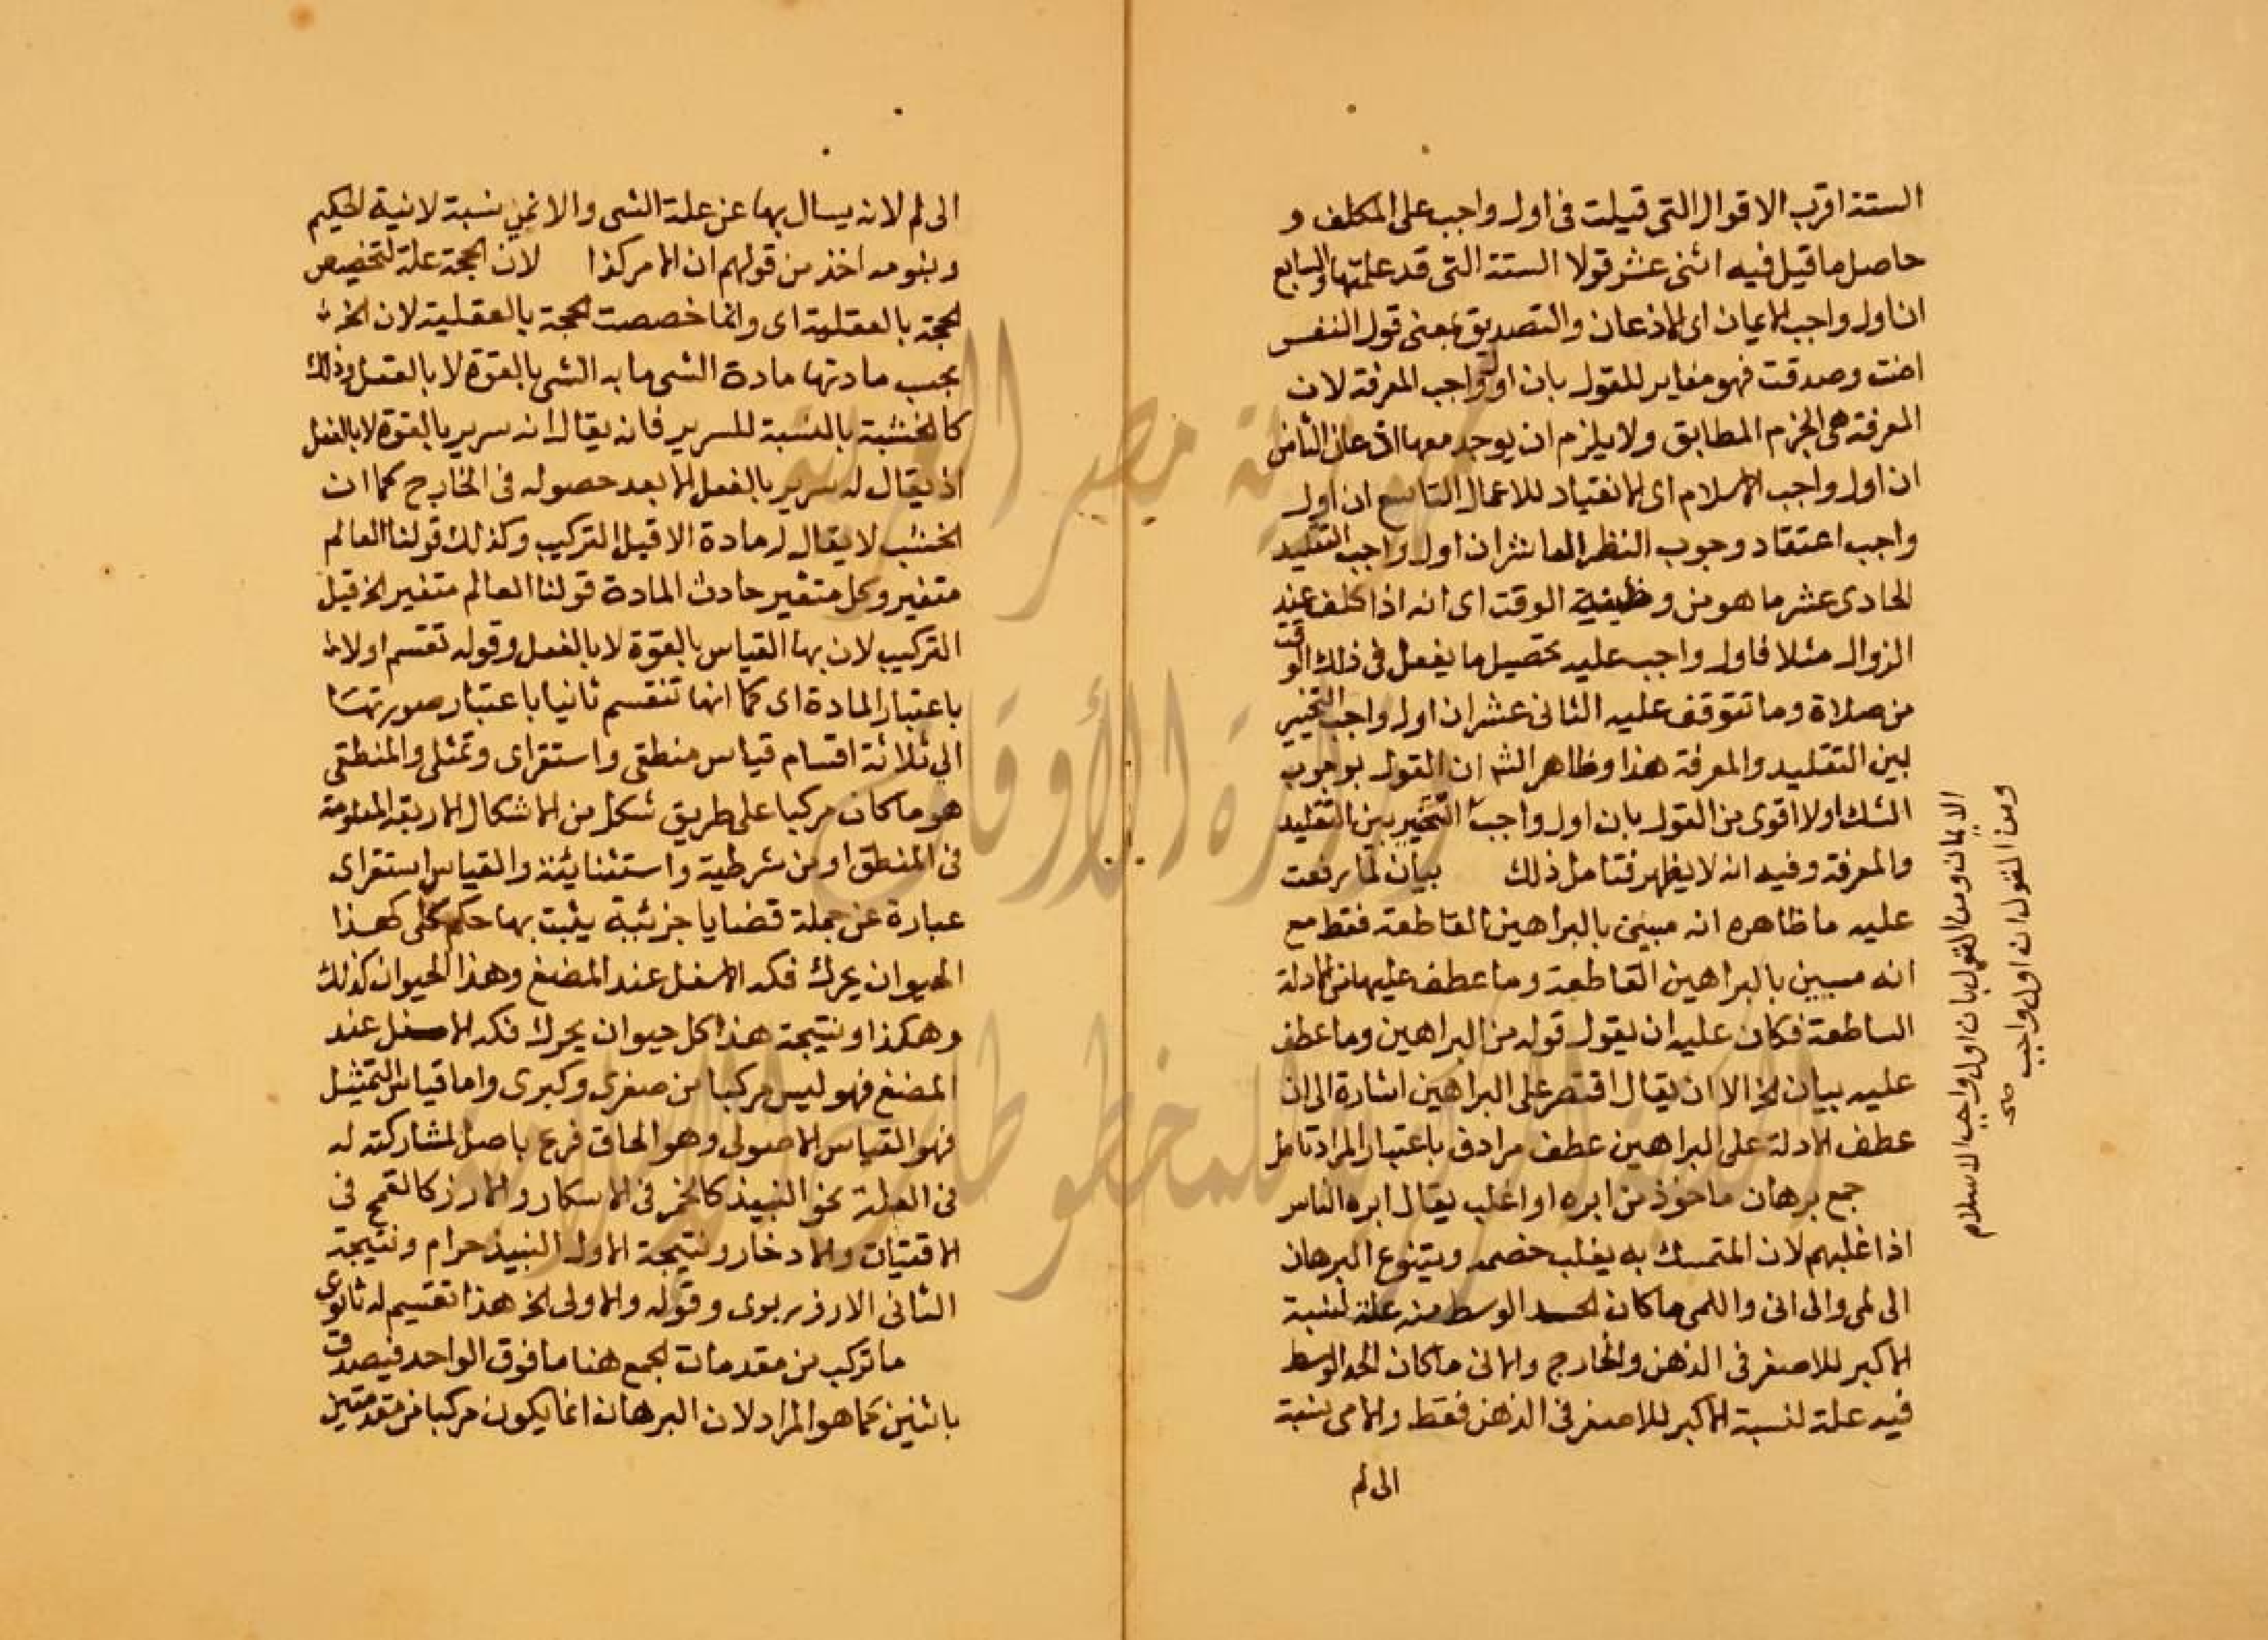 الستة اقرب الاقوال التى قيلت فى اول واجب على المكلف و
حاصل ما قيل فيه اثنى عشر قولا الستة التى قد علمتها والسابع
ان اول واجب الايمان اى الاذعان والتصديق بمعنى قول النفس
امنت وصدقت فهو مغاير للقول بان اول واجب المعرفة لان
المعرفة هى الجزم المطابق ولا يلزم ان يوجد معها اذعان الثامن
ان اول واجب الاسلام اى الانقياد للاعمال التاسع ان اول
واجب اعتقاد وجوب النظر العاشر ان اول واجب التقليد
الحادى عشر ما هو من وظيفية الوقت اى انه اذا كلف عند
الزوال مثلا فاول واجب عليه تحصيل ما يفعل فى ذلك الوقت
من صلاة وما تتوقف عليه الثانى عشر ان اول واجب التخيير
بين التقليد والمعرفة هذا وظاهر الشر ان القول بوجوب
الشك اولا اقوى من القول بان اول واجب التخيير بين التقليد
والمعرفة وفيه انه لا يظهر فتامل ذلك بيان لما رفعت
عليه ما ظاهره انه مبين بالبراهين القاطعة فقط مع
انه مبين بالبراهين القاطعة وما عطف عليها من الادلة
الساطعة فكان عليه ان يقول قوله من البراهين وما عطف
عليه بيان الخ الا ان يقال اقتصر على البراهين اشارة الى ان
عطف الادلة على البراهين عطف مرادف باعتبار المراد تامل
جمع برهان ماخوذ من ابره او اغلب يقال ابره الناس
اذا غلبهم لان المتمسك به يغلب خصمه ويتنوع البرهان
الى لمى والى انى واللمى ما كان الحد الوسط منه علة لنسبة
الاكبر للاصغر فى الذهن والخارج والانى ما كان الحد الوسط
فيه علة لنسبة الاكبر للاصغر فى الذهن فقط والامى نسبة
الى لم
الايمان ومن القول بان اول واجب الاسلام
ومن القول ان اول واجب
صح
الى لم لانه يسال بها عن علة الشى والانى نسبة لانية الحكيم
وثبوته اخذ من قولهم ان الامر كذا لان الحجة علة لتخصيص
الحجة بالعقلية اى وانما خصصت الحجة بالعقلية لان الخ
بحسب مادتها مادة الشى ما به الشى بالقوة لا بالفعل وذلك
كالخشبة بالنسبة للسرير فانه يقال انه سرير بالقوة لا بالفعل
اذ يقال له سرير بالفعل الا بعد حصوله فى الخارج كما ان
الخشب لا يقال له مادة الا قبل التركيب وكذلك قولنا العالم
متغير وكل متغير حادث المادة قولنا العالم متغير الخ قبل
التركيب لان بها القياس بالقوة لا بالفعل وقوله تقسم اولا
باعتبار المادة اى كما انها تنقسم ثانيا باعتبار صورتها
الى ثلاثة اقسام قياس منطقى واستقراى وتمثلى والمنطقى
هو ما كان مركبا على طريق شكل من الاشكال الاربعة المعلومة
فى المنطق او من شرطية واستثنائية والقياس استقراى
عبارة عن جملة قضايا جزئية يثبت بها حكم كلى كهذا
الحيوان يحرك فكه الاسفل عند المضغ وهذا الحيوان كذلك
وهكذا ونتيجة هذا كل حيوان يحرك فكه الاسفل عند
المضغ فهو ليس مركبا من صغرى وكبرى واما قياس التمثيل
فهو القياس الاصولى وهو الحاق فرع باصل لمشاركته له
فى العلة نحو النبيذ كالخمر فى الاسكار والارز كالقمح فى
الاقتيات والادخار ونتيجة الاول النبيذ حرام ونتيجة
الثانى الارز ربوى وقوله والاولى الخ هذا تقسيم له ثانوى
ما تركب من مقدمات الجمع هنا ما فوق الواحد فيصدق
باثنين كما هو المراد لان البرهان انما يكون مركبا من مقدمتين
جمهورية مصر العربية
وزارة الأوقاف
المكتبة المركزية للمخطوطات الإسلامية